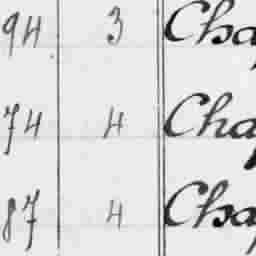 94 3 Cha
74 4 Cha
87 4 Cha